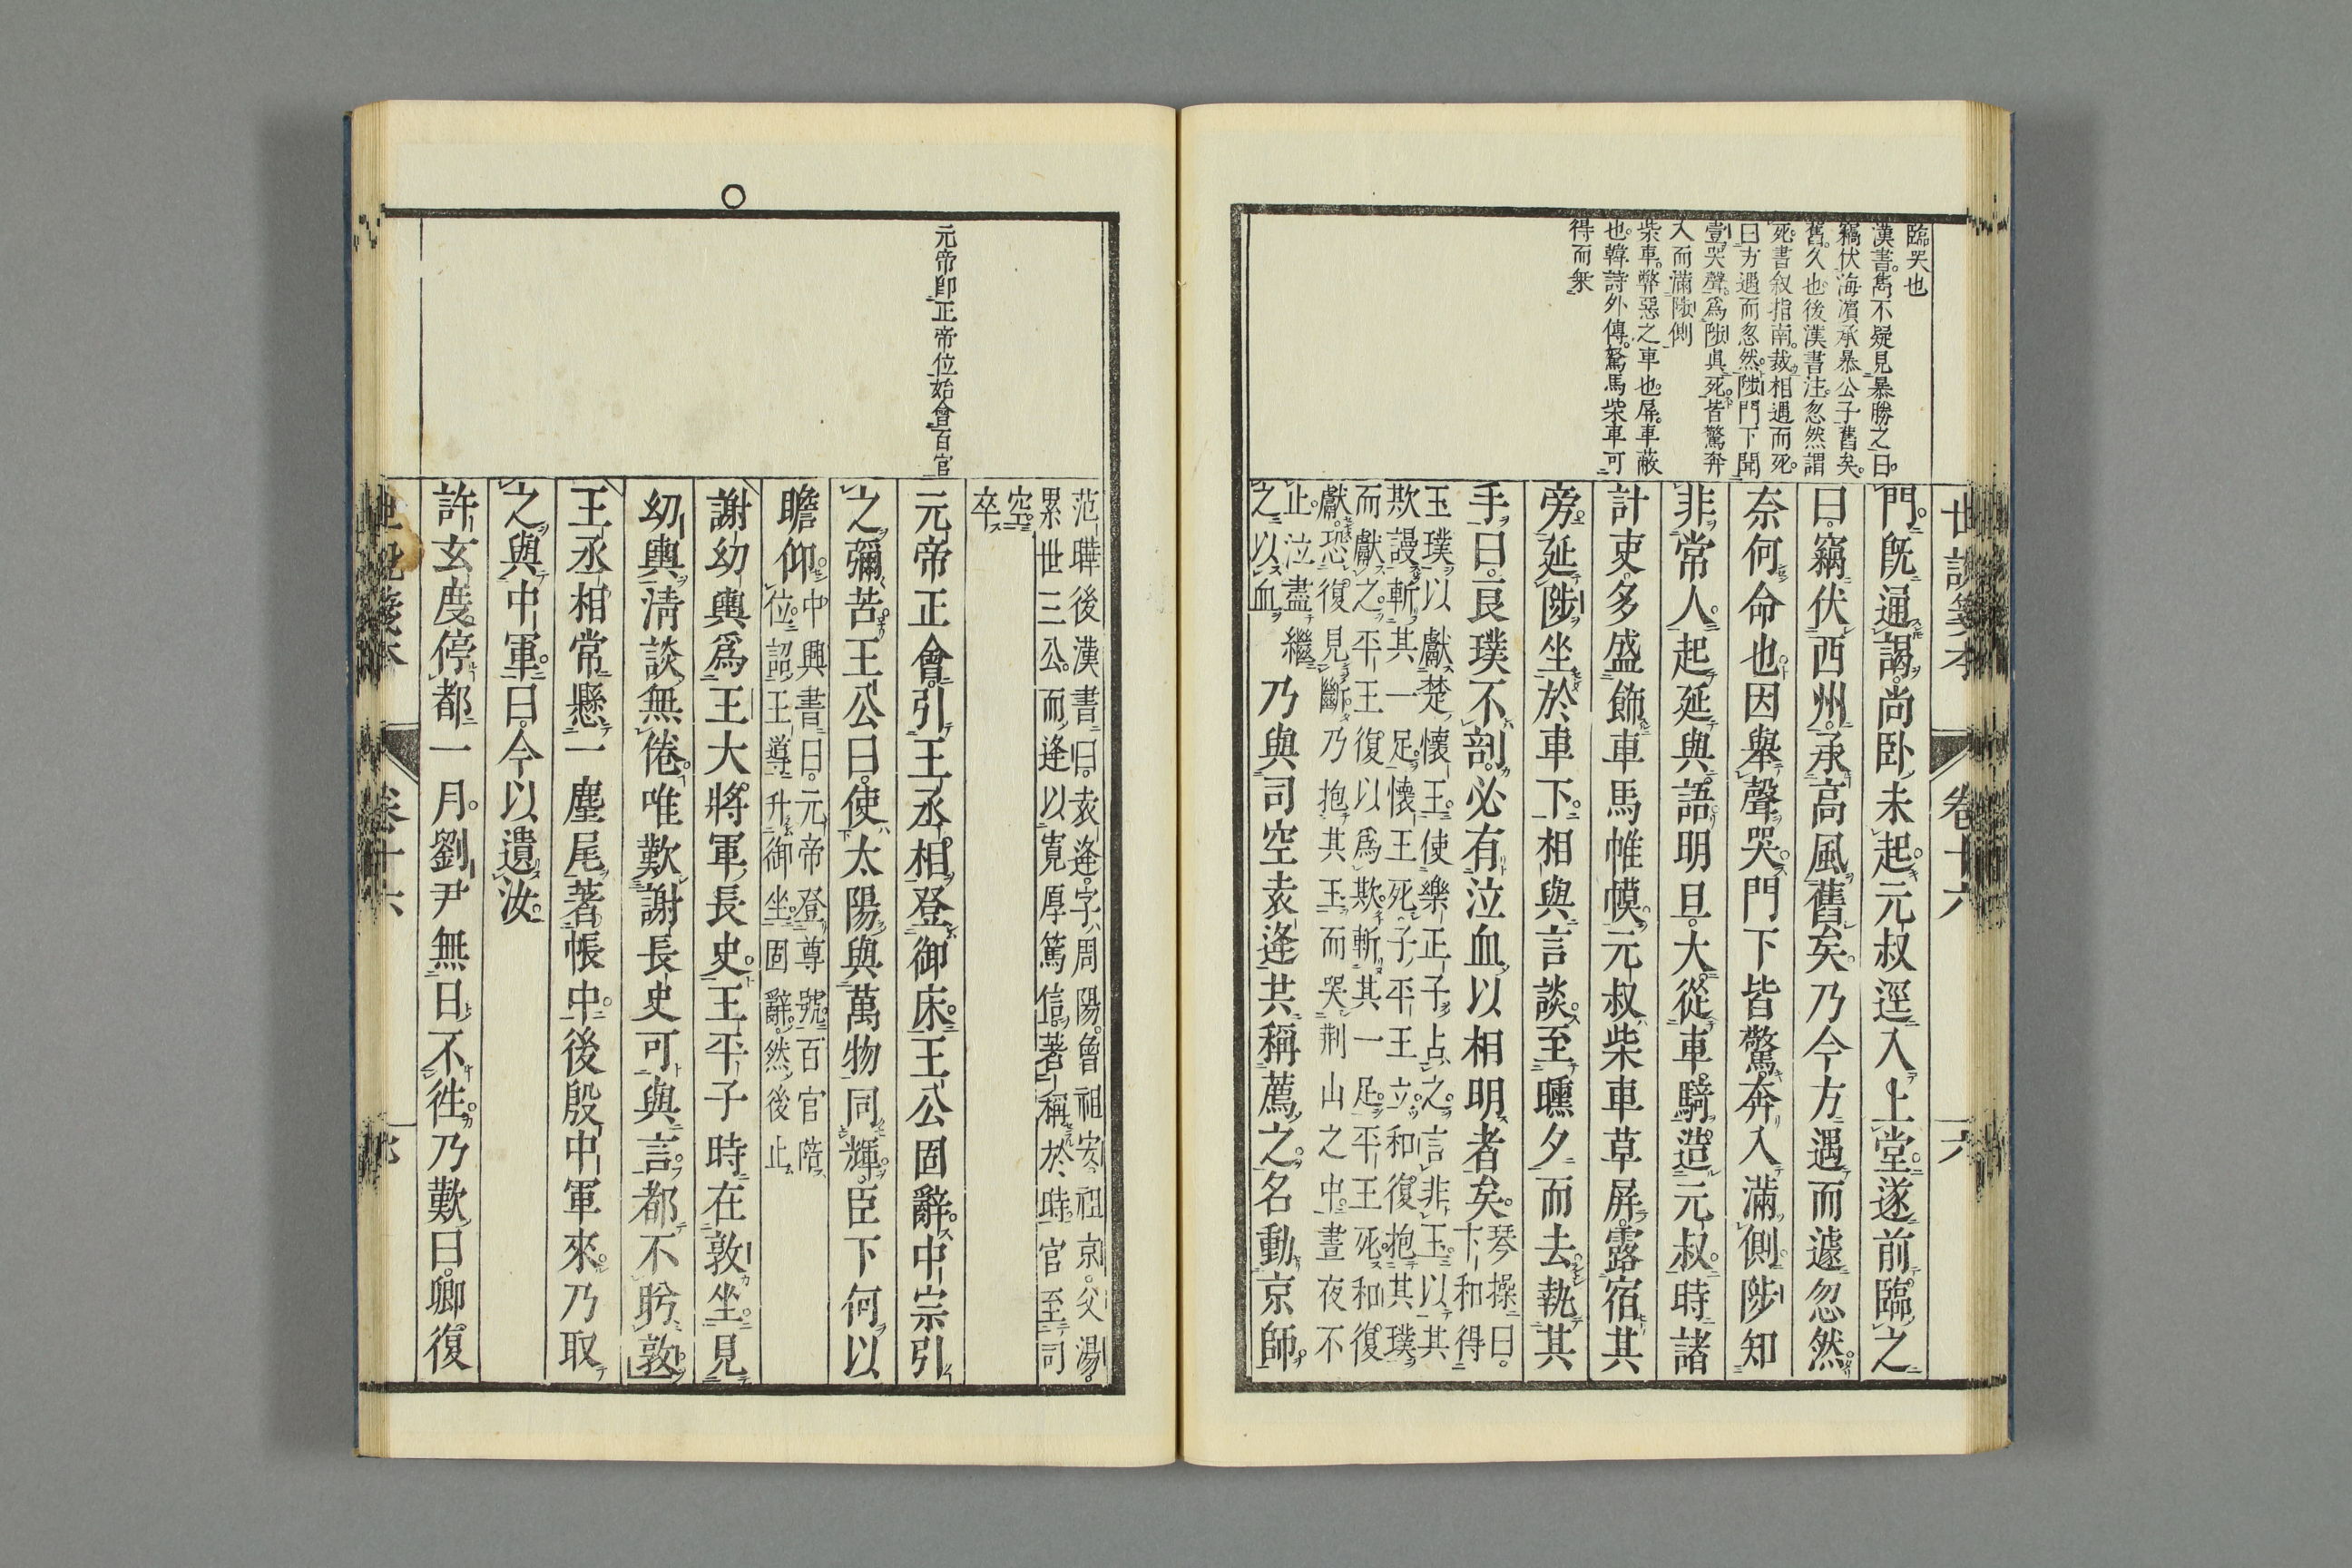 臨哭也
漢書雋不疑見暴勝之曰
竊伏海瀕承暴公子舊矣
舊久也後漢書注忽然謂
死書叙指南裁相遇而死
曰方遇而忽然陟門下聞
壹哭聲爲陟眞死皆驚奔
入而滿陟側
柴車弊惡之車也屏車蔽
也韓詩外傳駑馬柴車可
得而乗
門既通謁尚卧未起元叔逕入上堂遂前臨之
曰竊伏西州承高風舊矣乃今方遇而遽忽然
奈何命也因舉聲哭門下皆驚奔入滿側陟知
非常人起延與語明旦大從車騎造元叔時諸
計吏多盛飾車馬帷幙元叔柴車草屏露宿其
旁延陟坐於車下相與言談至曛夕而去執其
手曰良璞不剖必有泣血以相明者矣琴操曰
卞和得
玉璞以獻楚懷王使樂正子占之言非玉以其
欺謾斬其一足懷王死子平王立和復抱其璞
而獻之平王復以爲欺斬其一足平王死和復
獻恐復見斷乃抱其玉而哭荆山之中晝夜不
止泣盡繼
之以血乃與司空袁逢共稱薦之名動京師
世說箋本 卷十六 一六
元帝卽正帝位始會百官
范曄後漢書曰袁逢字周陽曾祖安祖京父湯
累世三公而逢以寛厚篤信著稱於時官至司
空
卒
元帝正會引王丞相登御床王公固辭中宗引
之彌苦王公曰使太陽與萬物同輝臣下何以
瞻仰中興書曰元帝登尊號百官陪
位詔王導升御坐固辭然後止
謝幼輿爲王大將軍長史王平子時在敦坐見
幼輿清談無倦唯歎謝長史可與言都不眄敦
王丞相常懸一麈尾著帳中後殷中軍來乃取
之與中軍曰今以遺汝
許玄度停都一月劉尹無日不徃乃歎曰卿復